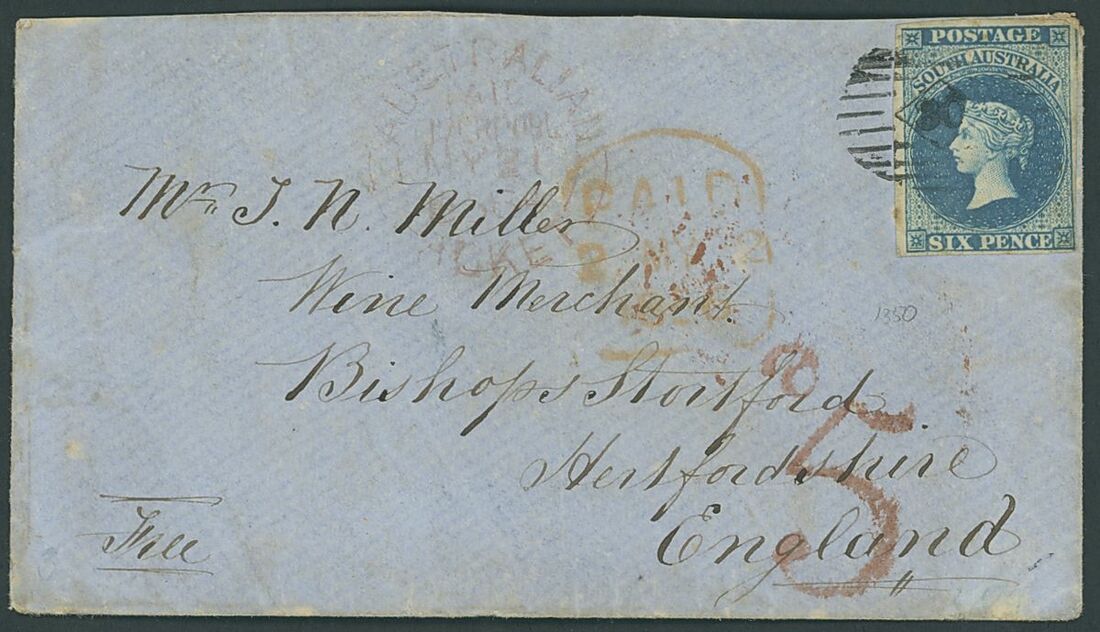 POSTAGE
SOUTH AUSTRALIA
SIX PENCE
AUSTRALIAN
PAID
LIVERPOOL
PACKET
PAID
Mr J. N. Miller
Wine Merchant
Bishops Stortford
Hertfordshire
England
Free
1350
5